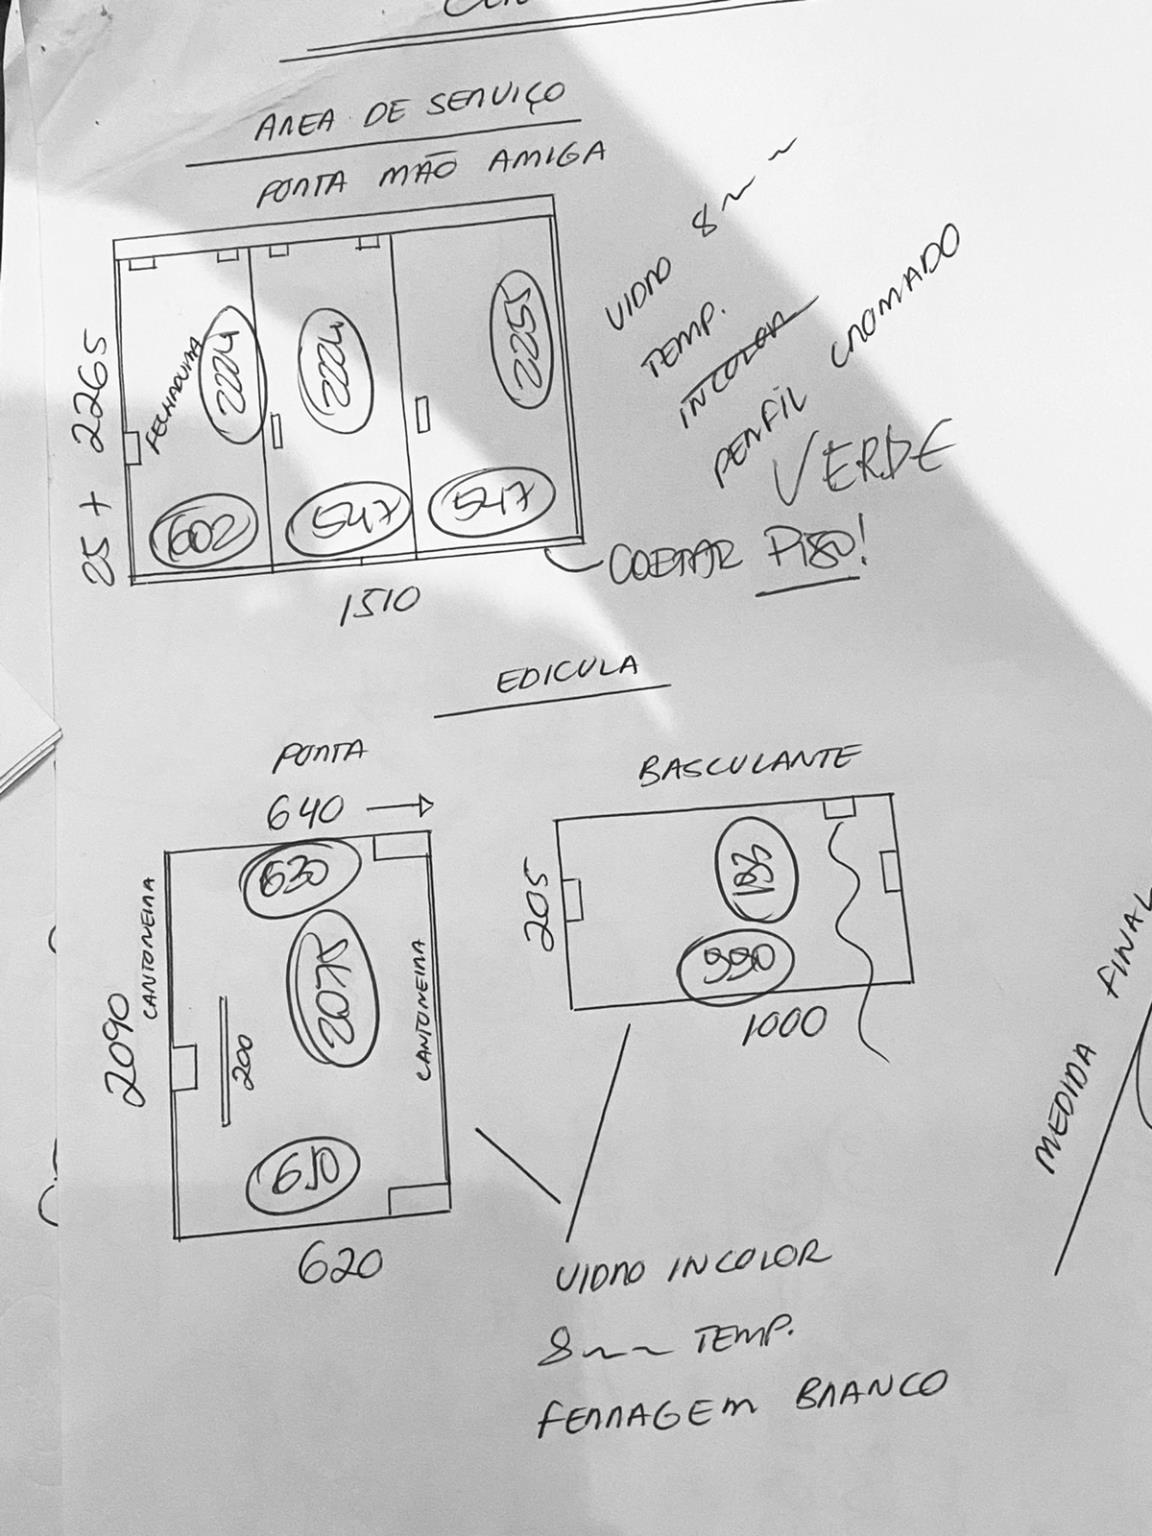 ÁREA DE SERVIÇO
PORTA MÃO AMIGA
VIDRO 8mm
TEMP.
INCOLOR
PERFIL CROMADO
VERDE
25 + 2265
FECHADURA
2224
2222
2255
602
547
547
1510
CORTAR PISO!
EDICULA
PORTA
640 →
630
CANTONEIRA
2075
CANTONEIRA
2090
200
610
620
BASCULANTE
205
990
1000
MEDIDA FINAL
VIDRO INCOLOR
8mm TEMP.
FERRAGEM BRANCO